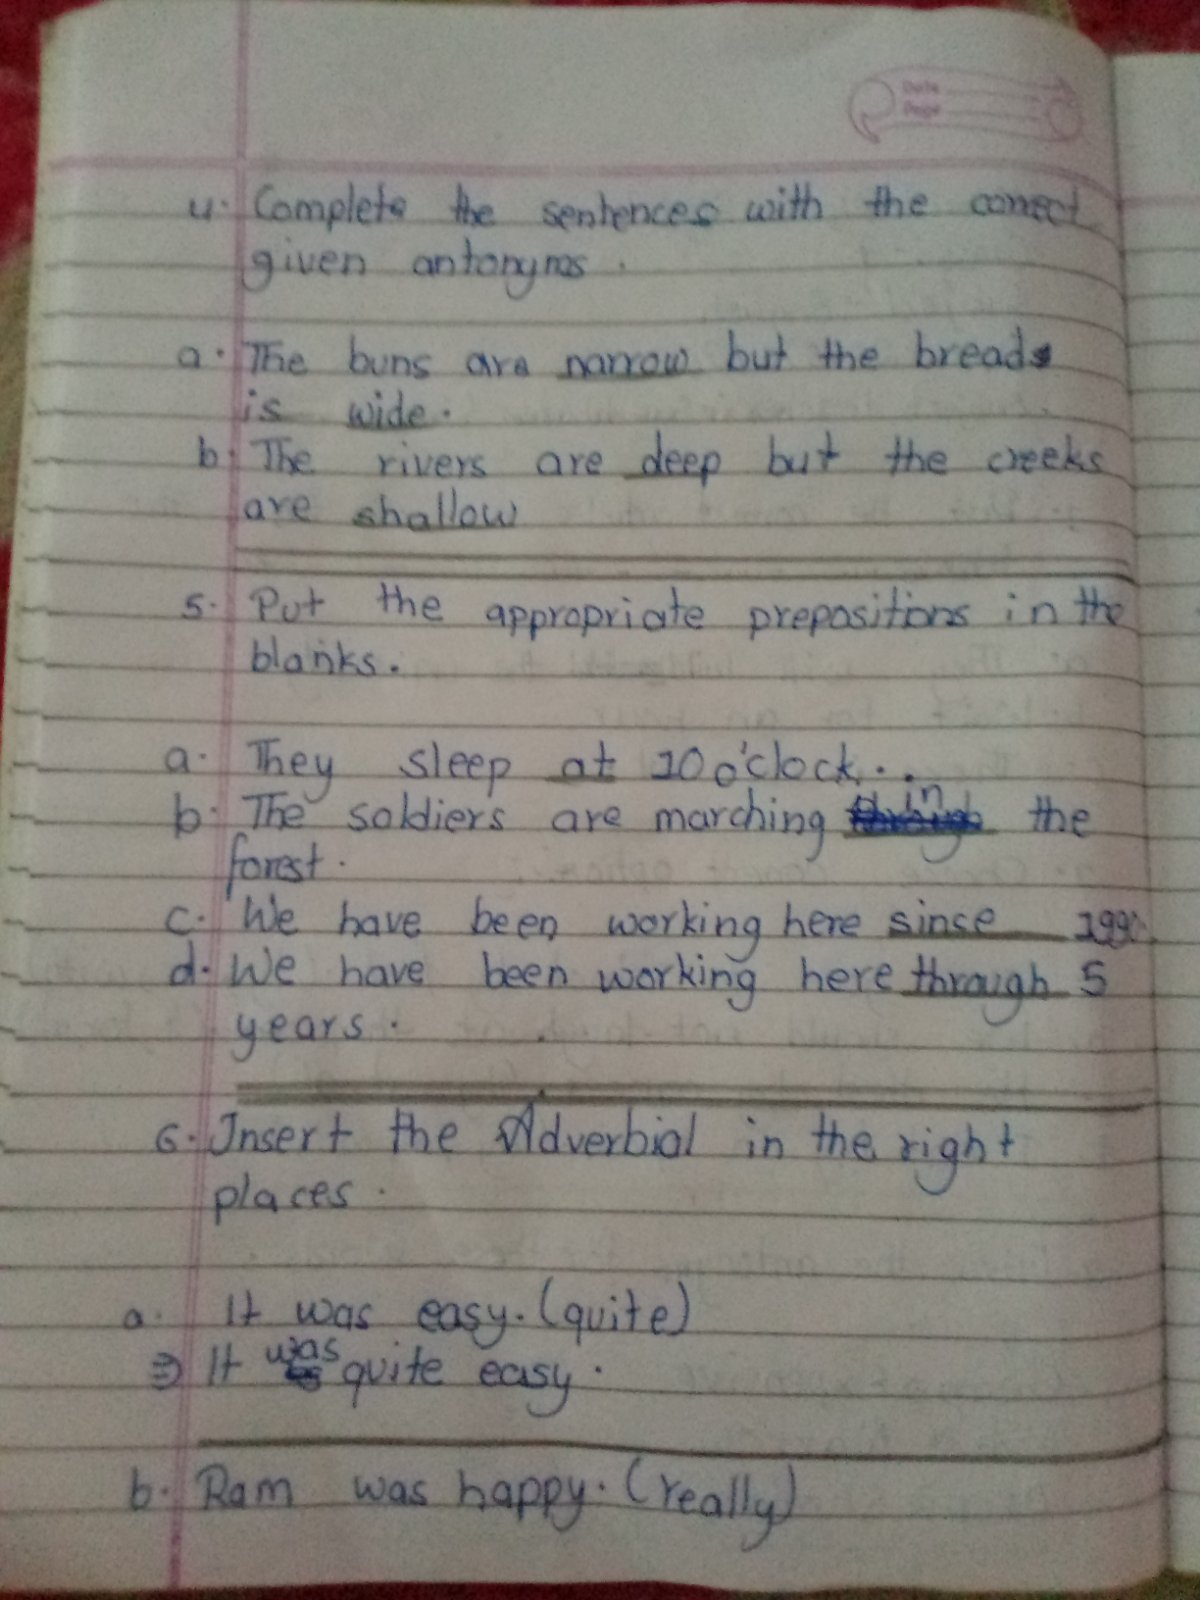 Date
Page
4. Complete the sentences with the correct
given antonyms.
a. The buns are narrow but the bread
is wide.
b. The rivers are deep but the creeks
are shallow
5. Put the appropriate prepositions in the
blanks.
a. They sleep at 10 o'clock..
b. The soldiers are marching in the
forest.
c. We have been working here since
d. We have been working here through 5
years.
6. Insert the Adverbial in the right
places.
a. It was easy. (quite)
⇒ It was quite easy.
b. Ram was happy. (really)